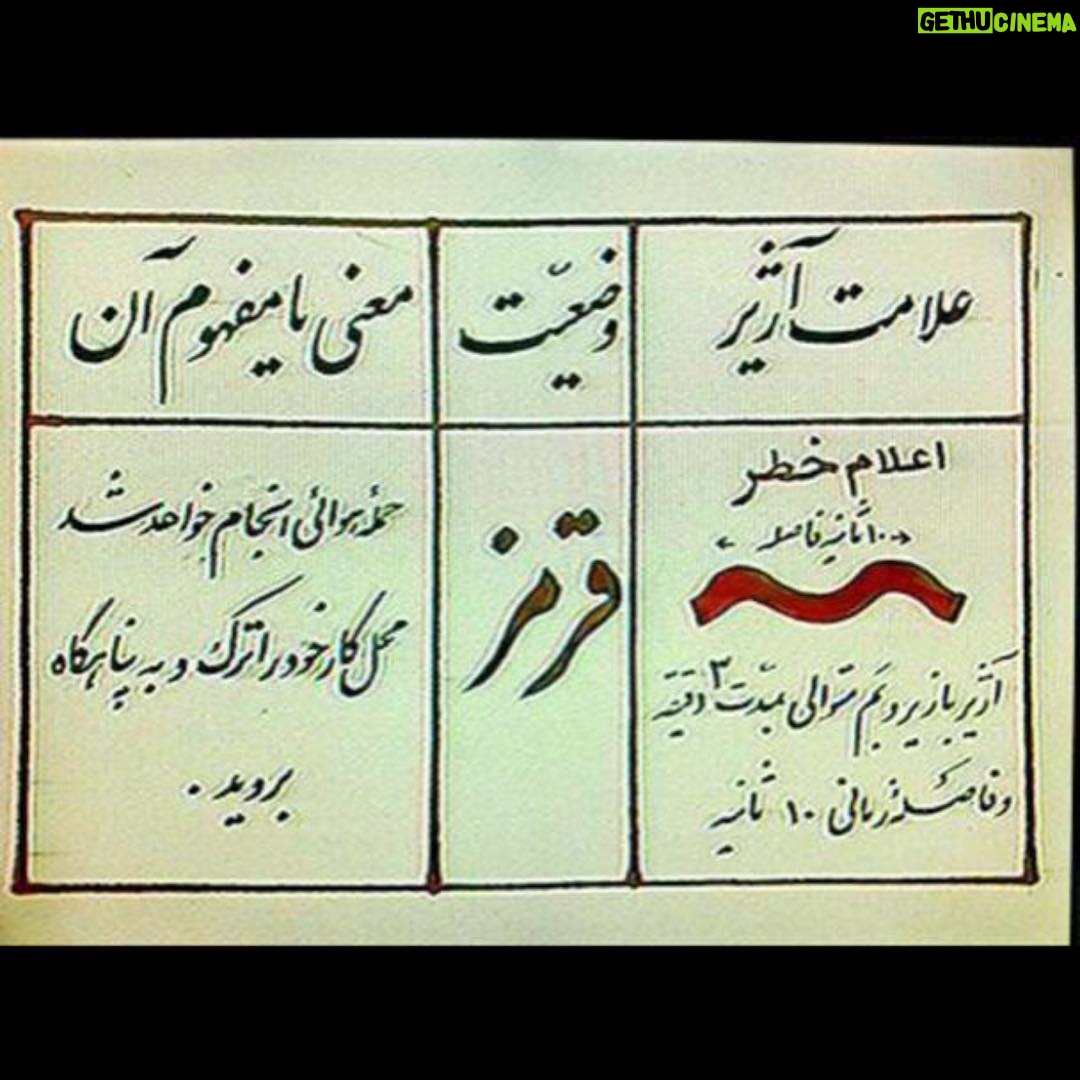 GETHUCINEMA
علامت آژیر
وضعیّت
معنی یا مفهوم آن
اعلام خطر
← ۱۰ ثانیه فاصله →
آژیر با زیر و بَم متوالی بمدّت ۳ دقیقه
و فاصلهٔ زمانی ۱۰ ثانیه
قرمز
حملهٔ هوائی انجام خواهد شد
محل کار خود را ترک و به پناهگاه
بروید .